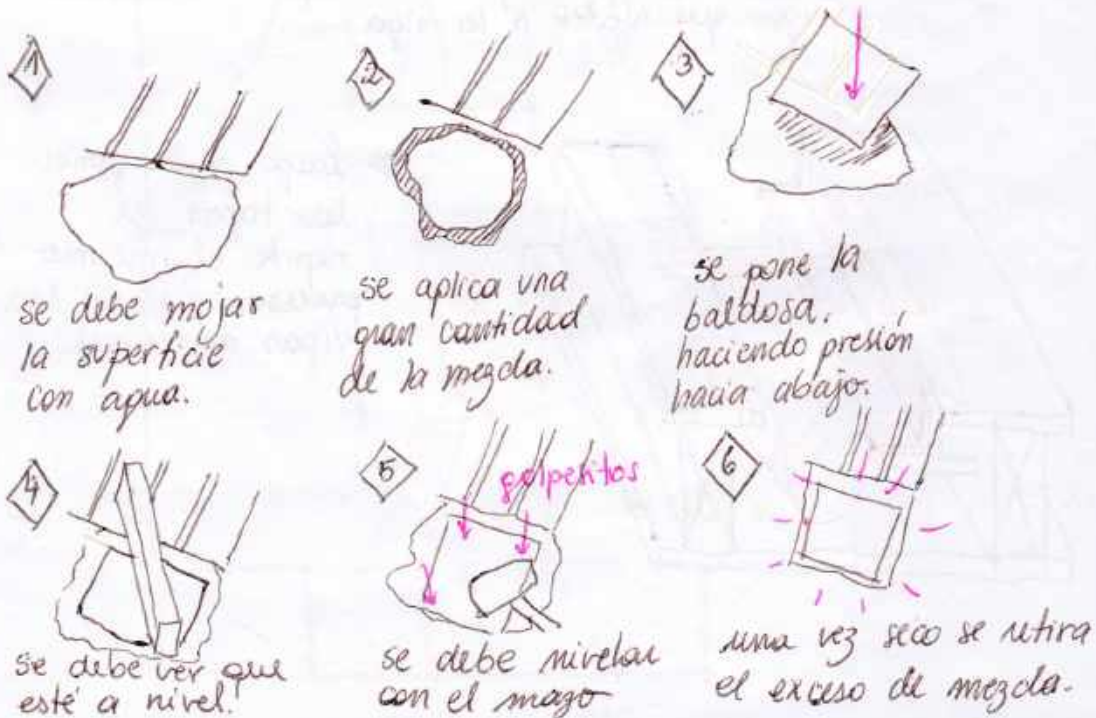 1
se debe mojar
la superficie
con agua.
2
se aplica una
gran cantidad
de la mezcla.
3
se pone la
baldosa.
haciendo presión
hacia abajo.
4
se debe ver que
esté a nivel.
5
golpecitos
se debe nivelar
con el mazo
6
una vez seco se retira
el exceso de mezcla.